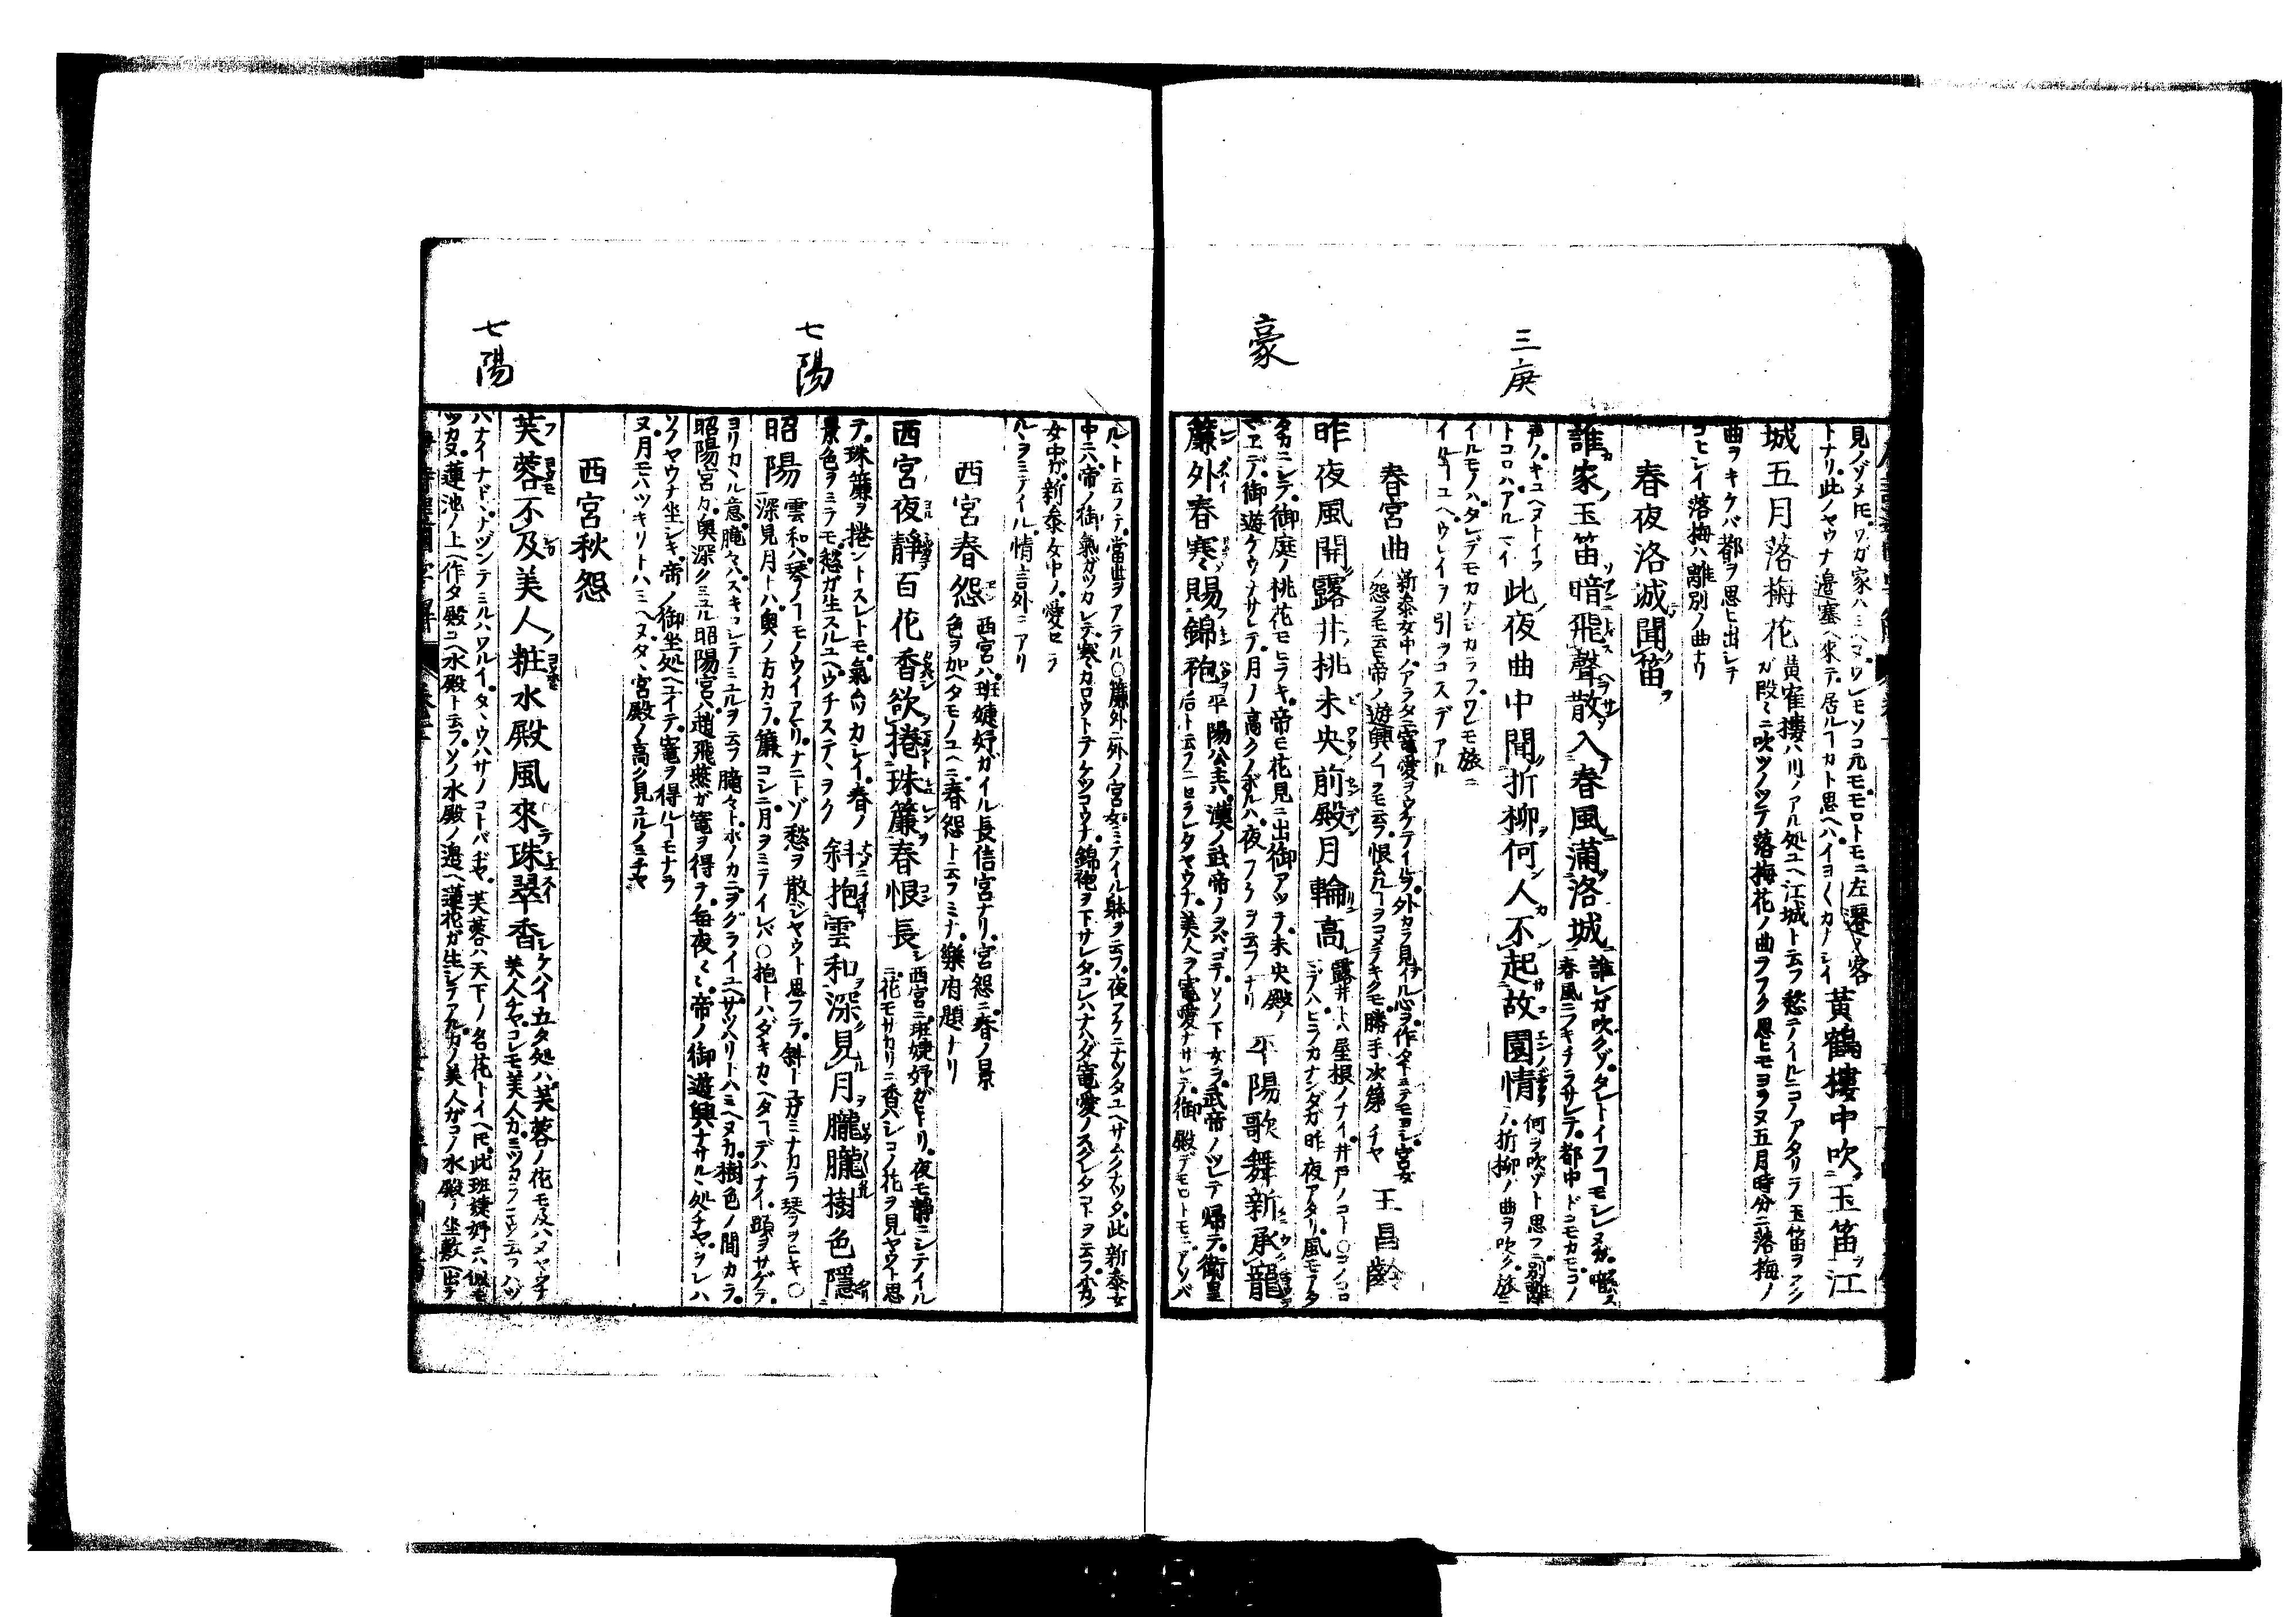 三庚
豪
見ノゾメ𪜈ワガ家ハミヘヌ
トナリ此ノヤウナ邊塞ヘ來テ居ルカト思ヘハイヨ〱カナシイ
黃鶴樓中吹玉笛江
城五月落梅花
黃寉樓ハ川ノアル処ユヘ江城ト云フ愁テイルニコノアタリラ玉笛ヲ
ガ段〻ニ吹ツノツテ落梅花ノ曲ヲフク思ヒモヨラヌ五月時分ニ落梅ノ
曲ヲキケバ都ヲ思ヒ出シテ
コヒシイ落梅ハ離別ノ曲ナリ
春夜洛城聞笛
誰家玉笛暗飛聲散入春風滿洛城
誰レガ吹クゾ
春風ニフキチラサレテ都中
トコロハアルマイ
此夜曲中聞折柳何人不起故園情
何ヲ吹ゾト思フニ別離
ノ折柳ノ曲ヲ吹ク旅ニ
イルモノハタレデモカナシカラフワレモ旅ニ
イルユヘウレイヲ引ヲコスデアル
春宮曲
新參女中ノアラタニ寵愛ヲウケテイルヲ外カラ見イル心ヲ作タ
ノ怨ヲモ云ヒ帝ノ遊興ノヿヲモ云フ恨ムルヿヲコメテキクモ勝手次第ヂヤ
王昌齡
昨夜風開露井桃未央前殿月輪高
露井トハ屋根ノナイ井戸ノコト○コノコロ
マデハヒラカナンダガ昨夜アタリ風モアタ
タカニシテ御庭ノ桃花モヒラキ帝モ花見ニ出御アツテ未央殿ノ
マヱデ御遊ケウナサレテ月ノ高クノボルハ夜フクヲ云フナリ
平陽歌舞新承寵
簾外春寒賜錦袍
平陽公主ハ漢ノ武帝ノヲバゴデソノ下女ヲ武帝ノツレテ帰テ衛皇
后ト云フニセラレタヤウナ美人ヲ寵愛ナサレテ御殿デモモトモニアソバ
七陽
七陽
ルヽト云フテ當世ヲアテル○簾外ニ外ノ宮女ミテイル躰ヲ云フ夜フケニナツタユヘサムクナツタ此新參女
中ニハ帝ノ御氣ガツカレテ寒カロウトテケツコウナ錦袍ヲ下サレタコレハナハダ寵愛ノスグレタコトヲ云フ
女中ガ新參女中ノ愛セラ
ルヽヲミテイル情言外ニアリ
西宮春怨
西宮ハ班婕妤ガイル長信宮ナリ宮怨ニ春ノ景
色ヲ加ヘタモノユヘニ春怨ト云フミナ樂府題ナリ
西宮夜靜百花香欲捲珠簾春恨長
西宮ニ班婕妤ガヒトリ夜モ靜ニシテイル
ニ花モサカリニ香バシコノ花ヲ見ヤウト思
テ珠簾ヲ捲ントスレトモ氣ムツカシイ春ノ
景色ヲミテモ愁ガ生スルユヘウチステヽヲク
斜抱雲和深見月朧朧樹色隱
昭陽
雲和ハ琴ノヿモノウイアヒリナニトゾ愁ヲ散ジヤウト思フテ斜ニユガミナカラ琴ヲヒキ○
深見月トハ奥ノ方カラ簾コシニ月ヲミテイレバ○抱トハダキカヽヘタヿデハナイ頭ヲサゲテ
ヨリカヽル意朧々ハスキコシテミユルヲ云フ朧々トホノカニヲグライユヘサツハリトハミヘヌカ樹色ノ間カラ
昭陽宮ガ奥深クミユル昭陽宮ハ趙飛燕ガ寵ヲ得テ每夜〻帝ノ御遊興ナサルヽ処ヂヤヲレハ
ソノヤウナ坐シキ帝ノ御坐処ヘユイテ寵ヲ得ルヿモナラ
ヌ月モハツキリトハミヘヌタヽ宮殿ノ高ク見ユルノミヂヤ
西宮秋怨
芙蓉不及美人粧水殿風來珠翠香
美人ヂヤコレモ美人カミツカラ云フハヅ
ハナイナドヽナヅンテミルハワルイタヽウハサノコトバヂヤ芙蓉ハ天下ノ名花トイヘ𪜈此班婕妤ニハ似モ
ツカヌ蓮池ノ上ヘ作タ殿ユヘ水殿ト云フソノ水殿ノ邊ヘ蓮花ガ生シテアルカノ美人ガコノ水殿ノ坐敷ヘ出テ